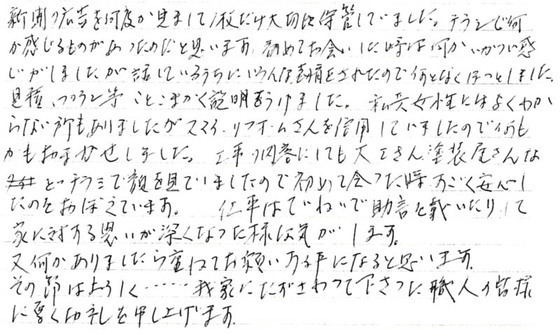 新聞の広告を何度か見まして1枚だけ大切に保管していました。チラシに何
か感じるものがあったのだと思います。初めてお会いした時は何かいかつい感
じがしましたが話しているうちにいろんな表情をされたので何となくほっとしました。
見積、プラン等ことこまかく説明をうけました。私共女性にはよくわか
らない所もありましたがスマイルリフォームさんを信用していましたので何も
かもおまかせしました。工事の関係にしても大工さん塗装屋さんな
どチラシで顔を見ていましたので初めて会った時すごく安心し
たのをおぼえています。仕事はていねいで助言を戴いたりして
家に対する思いが深くなった様な気がします。
又何かありましたら重ねてお願いする事になると思います。
その節はよろしく……我家にたずさわって下さった職人の皆様
に厚く御礼を申し上げます。